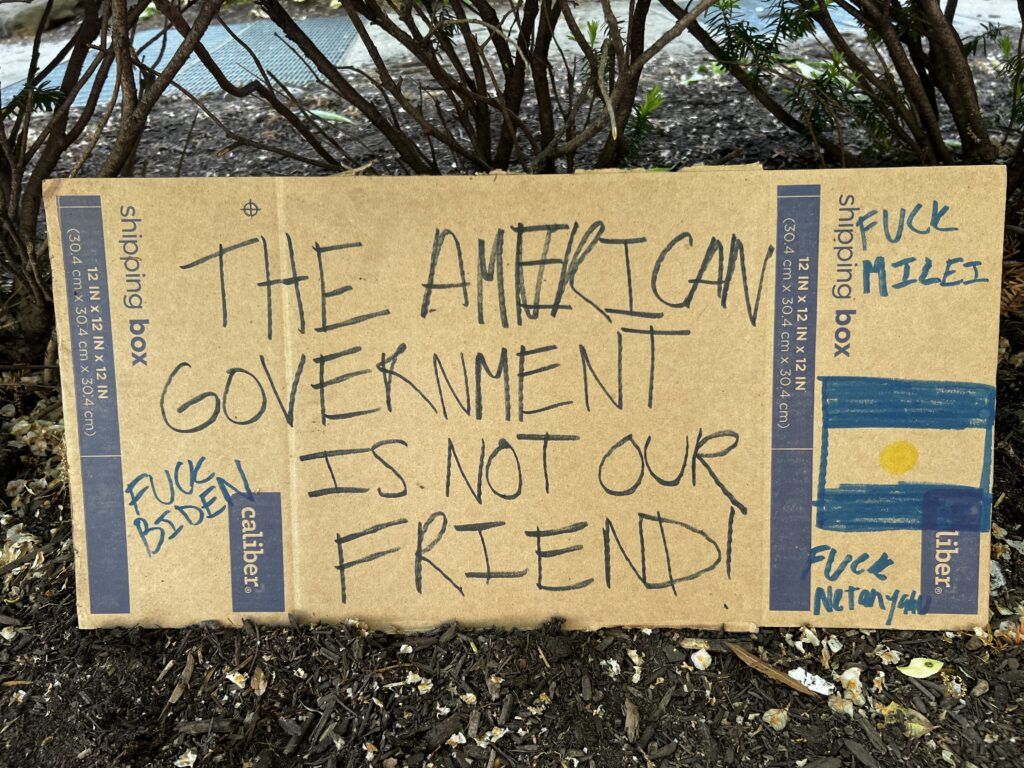 shipping box
12 IN x 12 IN
(30.4 cm x 30.4 cm)
THE AMERICAN
GOVERNMENT
IS NOT OUR
FRIEND!
FUCK
BIDEN
caliber®
shipping box
12 IN x 12 IN x 12 IN
(30.4 cm x 30.4 cm x 30.4 cm)
FUCK
MILEI
FUCK
Netanyahu
liber®